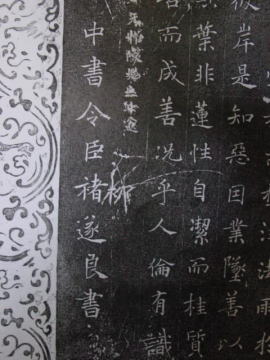 法雨於
彼岸是知惡因業墜善以
葉非蓮性自潔而桂質
而成善況乎人倫有識
柳
中書令臣褚遂良書